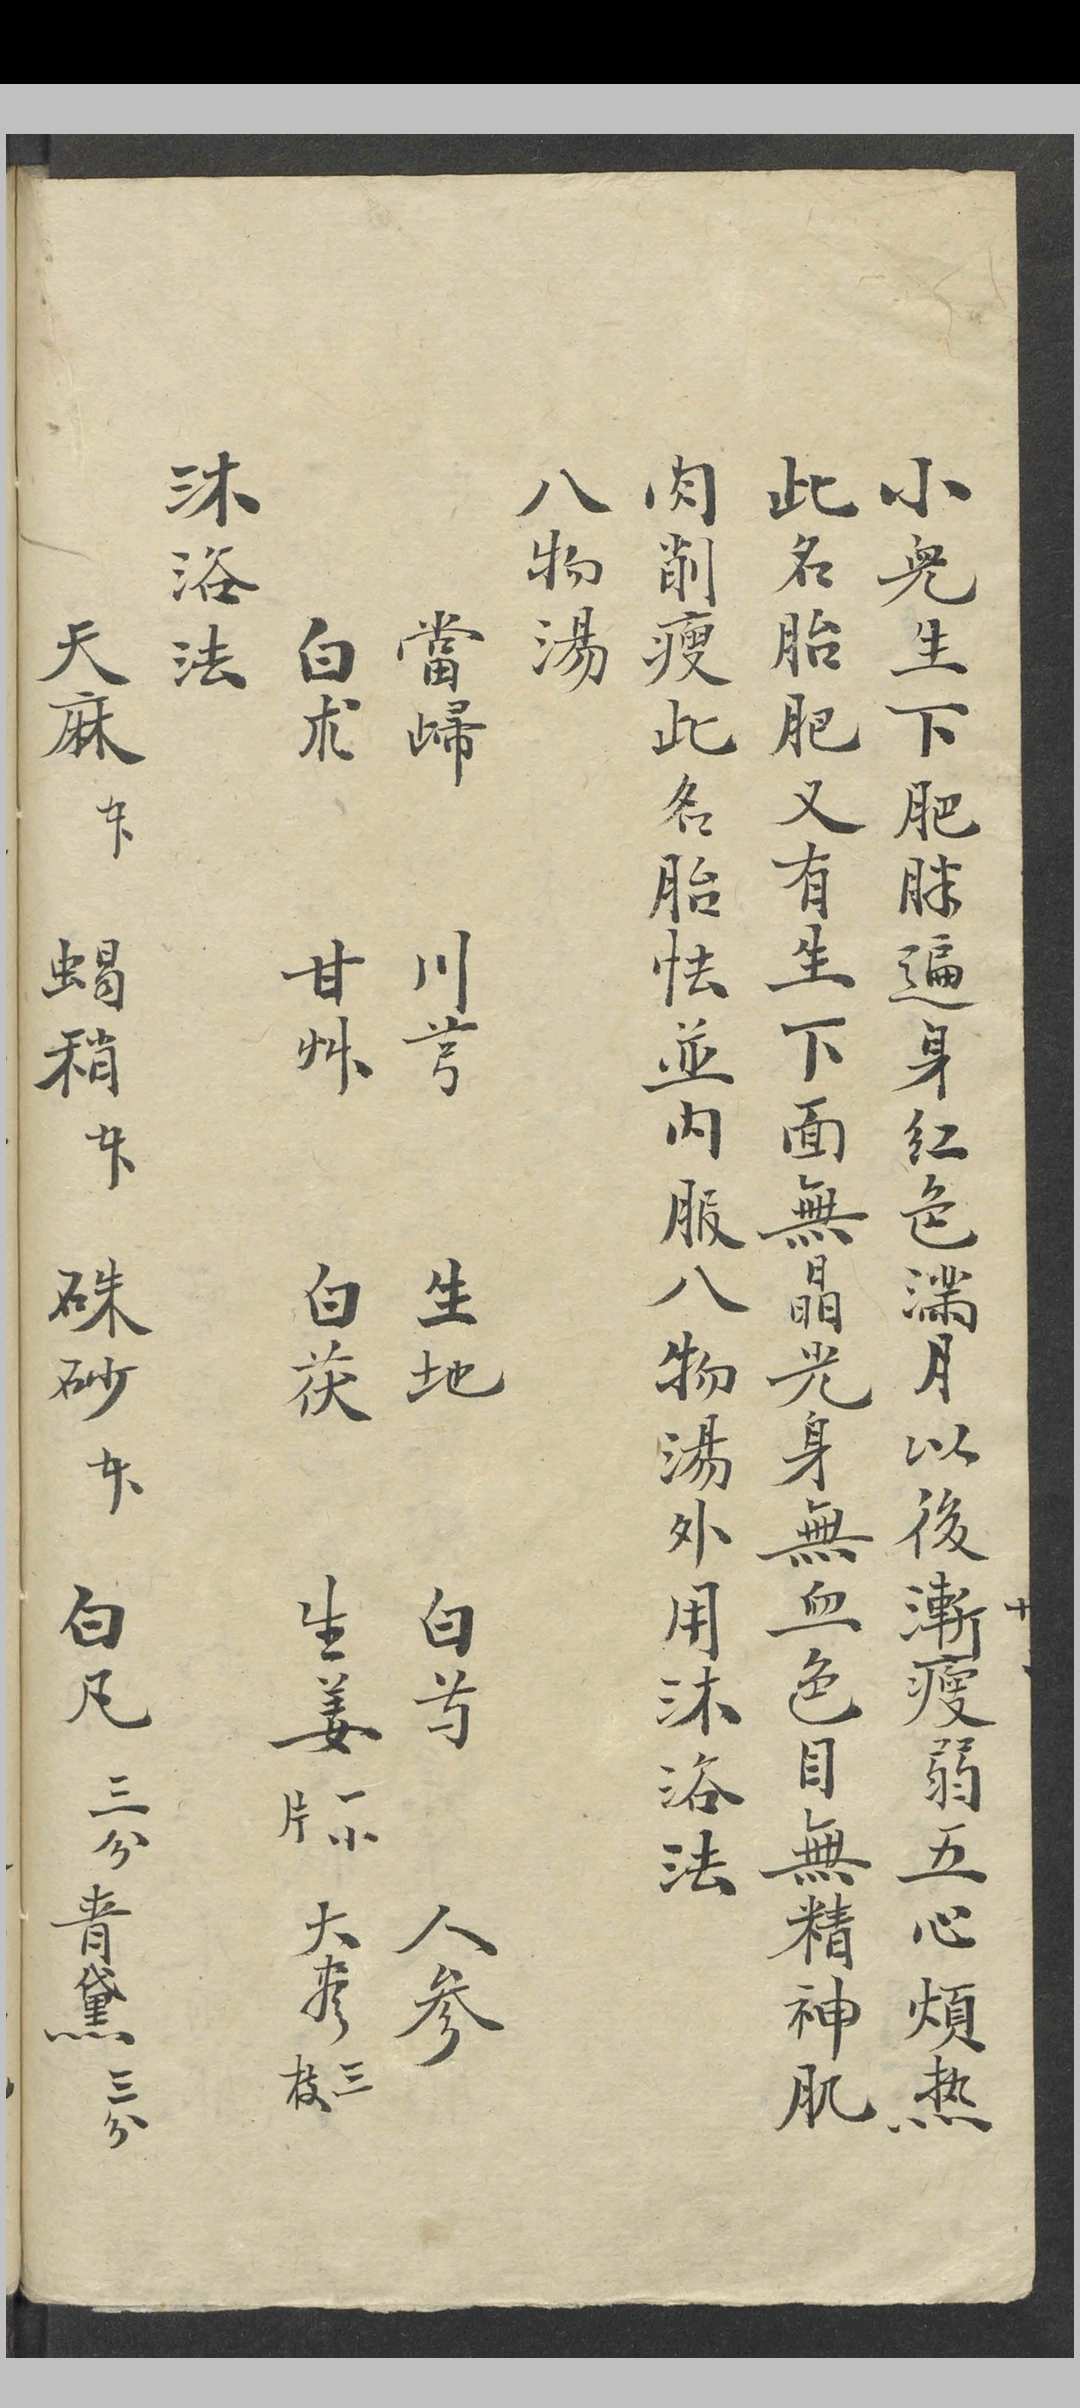 小兒生下肥胖遍身紅色滿月以後漸瘦弱五心煩热
此名胎肥又有生下面無晶光身無血色目無精神肌
肉削瘦此名胎怯並内服八物湯外用沐浴法
八物湯
當歸 川芎 生地 白芍 人參
白朮 甘艸 白茯 生姜 一小片 大枣 三枝
沐浴法
天麻 蝎稍 硃砂 白凡 三分 青黛 三分
十